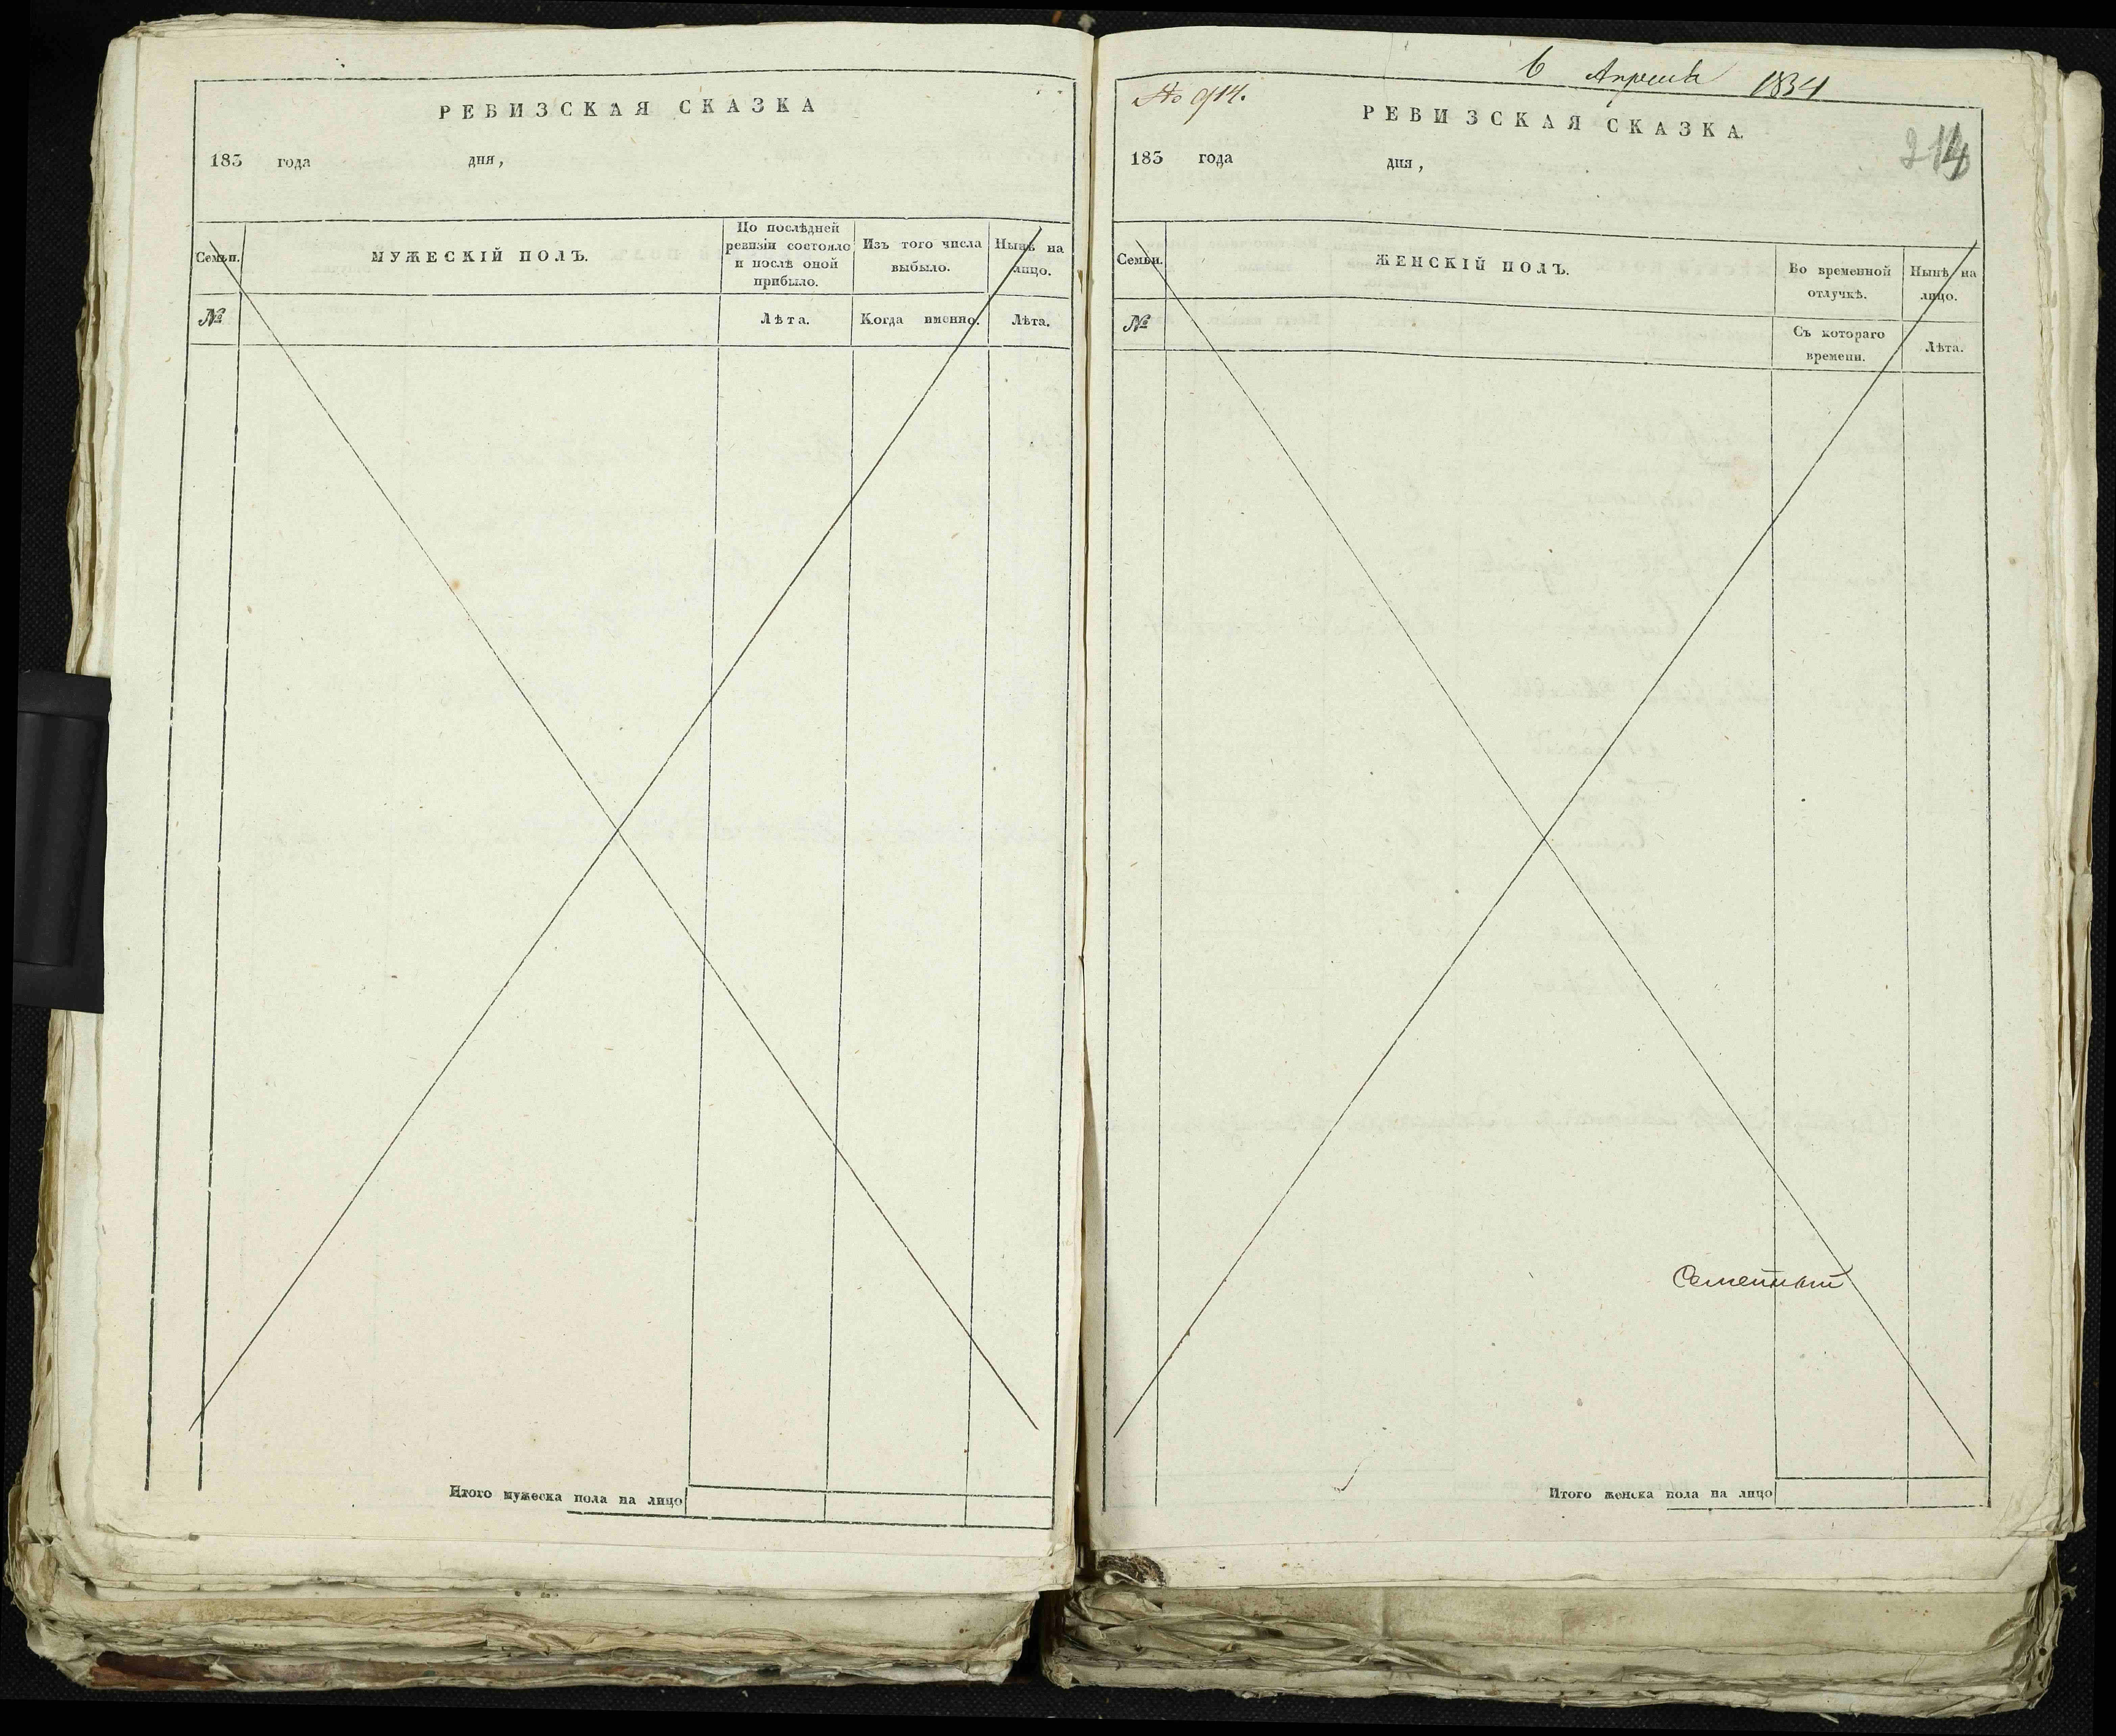 РЕВИЗСКАЯ СКАЗКА
183 года дня,
Семьи.
МУЖЕСКІЙ ПОЛЪ.
По послѣдней ревизіи состояло и послѣ оной прибыло.
Изъ того числа выбыло.
Нынѣ на лицо.
№
Лѣта.
Когда именно.
Лѣта.
Итого мужеска пола на лицо
6 Апреля 1834
№ 914.
РЕВИЗСКАЯ СКАЗКА.
214
183 года дня,
Семьи.
ЖЕНСКІЙ ПОЛЪ.
Во временной отлучкѣ.
Нынѣ на лицо.
№
Съ котораго времени.
Лѣта.
Итого женска пола на лицо